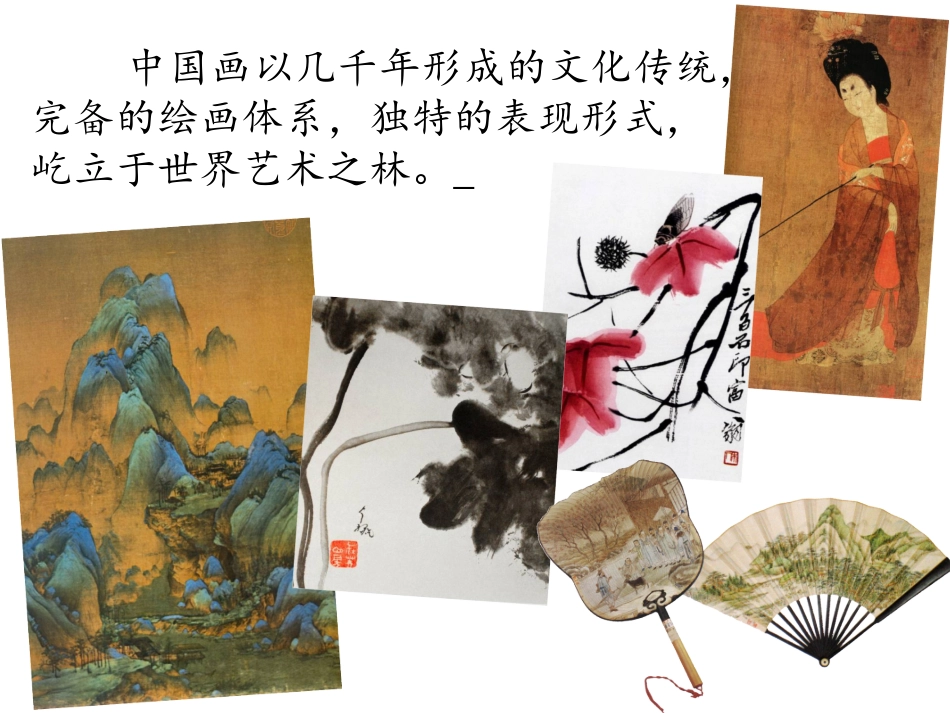 中国画以几千年形成的文化传统，
完备的绘画体系，独特的表现形式，
屹立于世界艺术之林。_
三百石印富翁